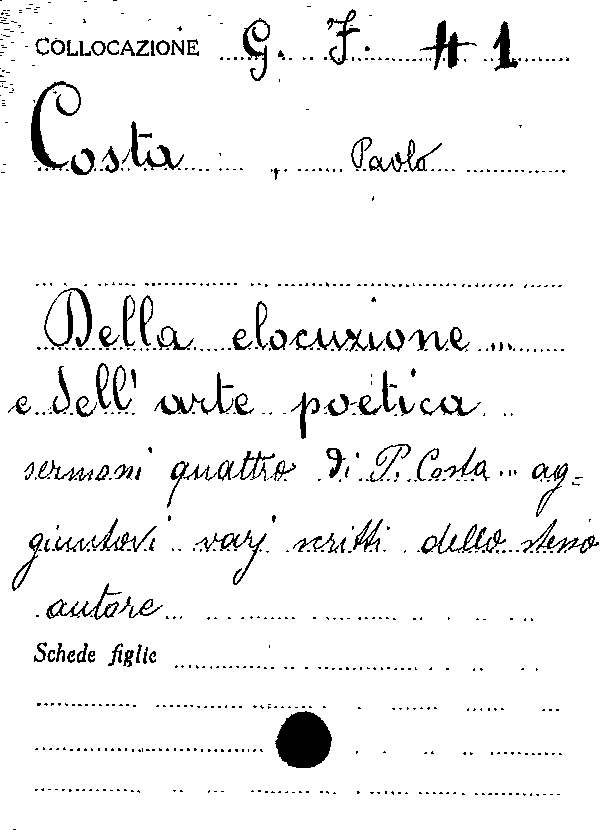 COLLOCAZIONE G. F. H 1
Costa, Paolo
Della elocuzione...
e dell' arte poetica
sermoni quattro di P. Costa... ag=
giuntovi varj scritti dello stesso
autore
Schede figlie